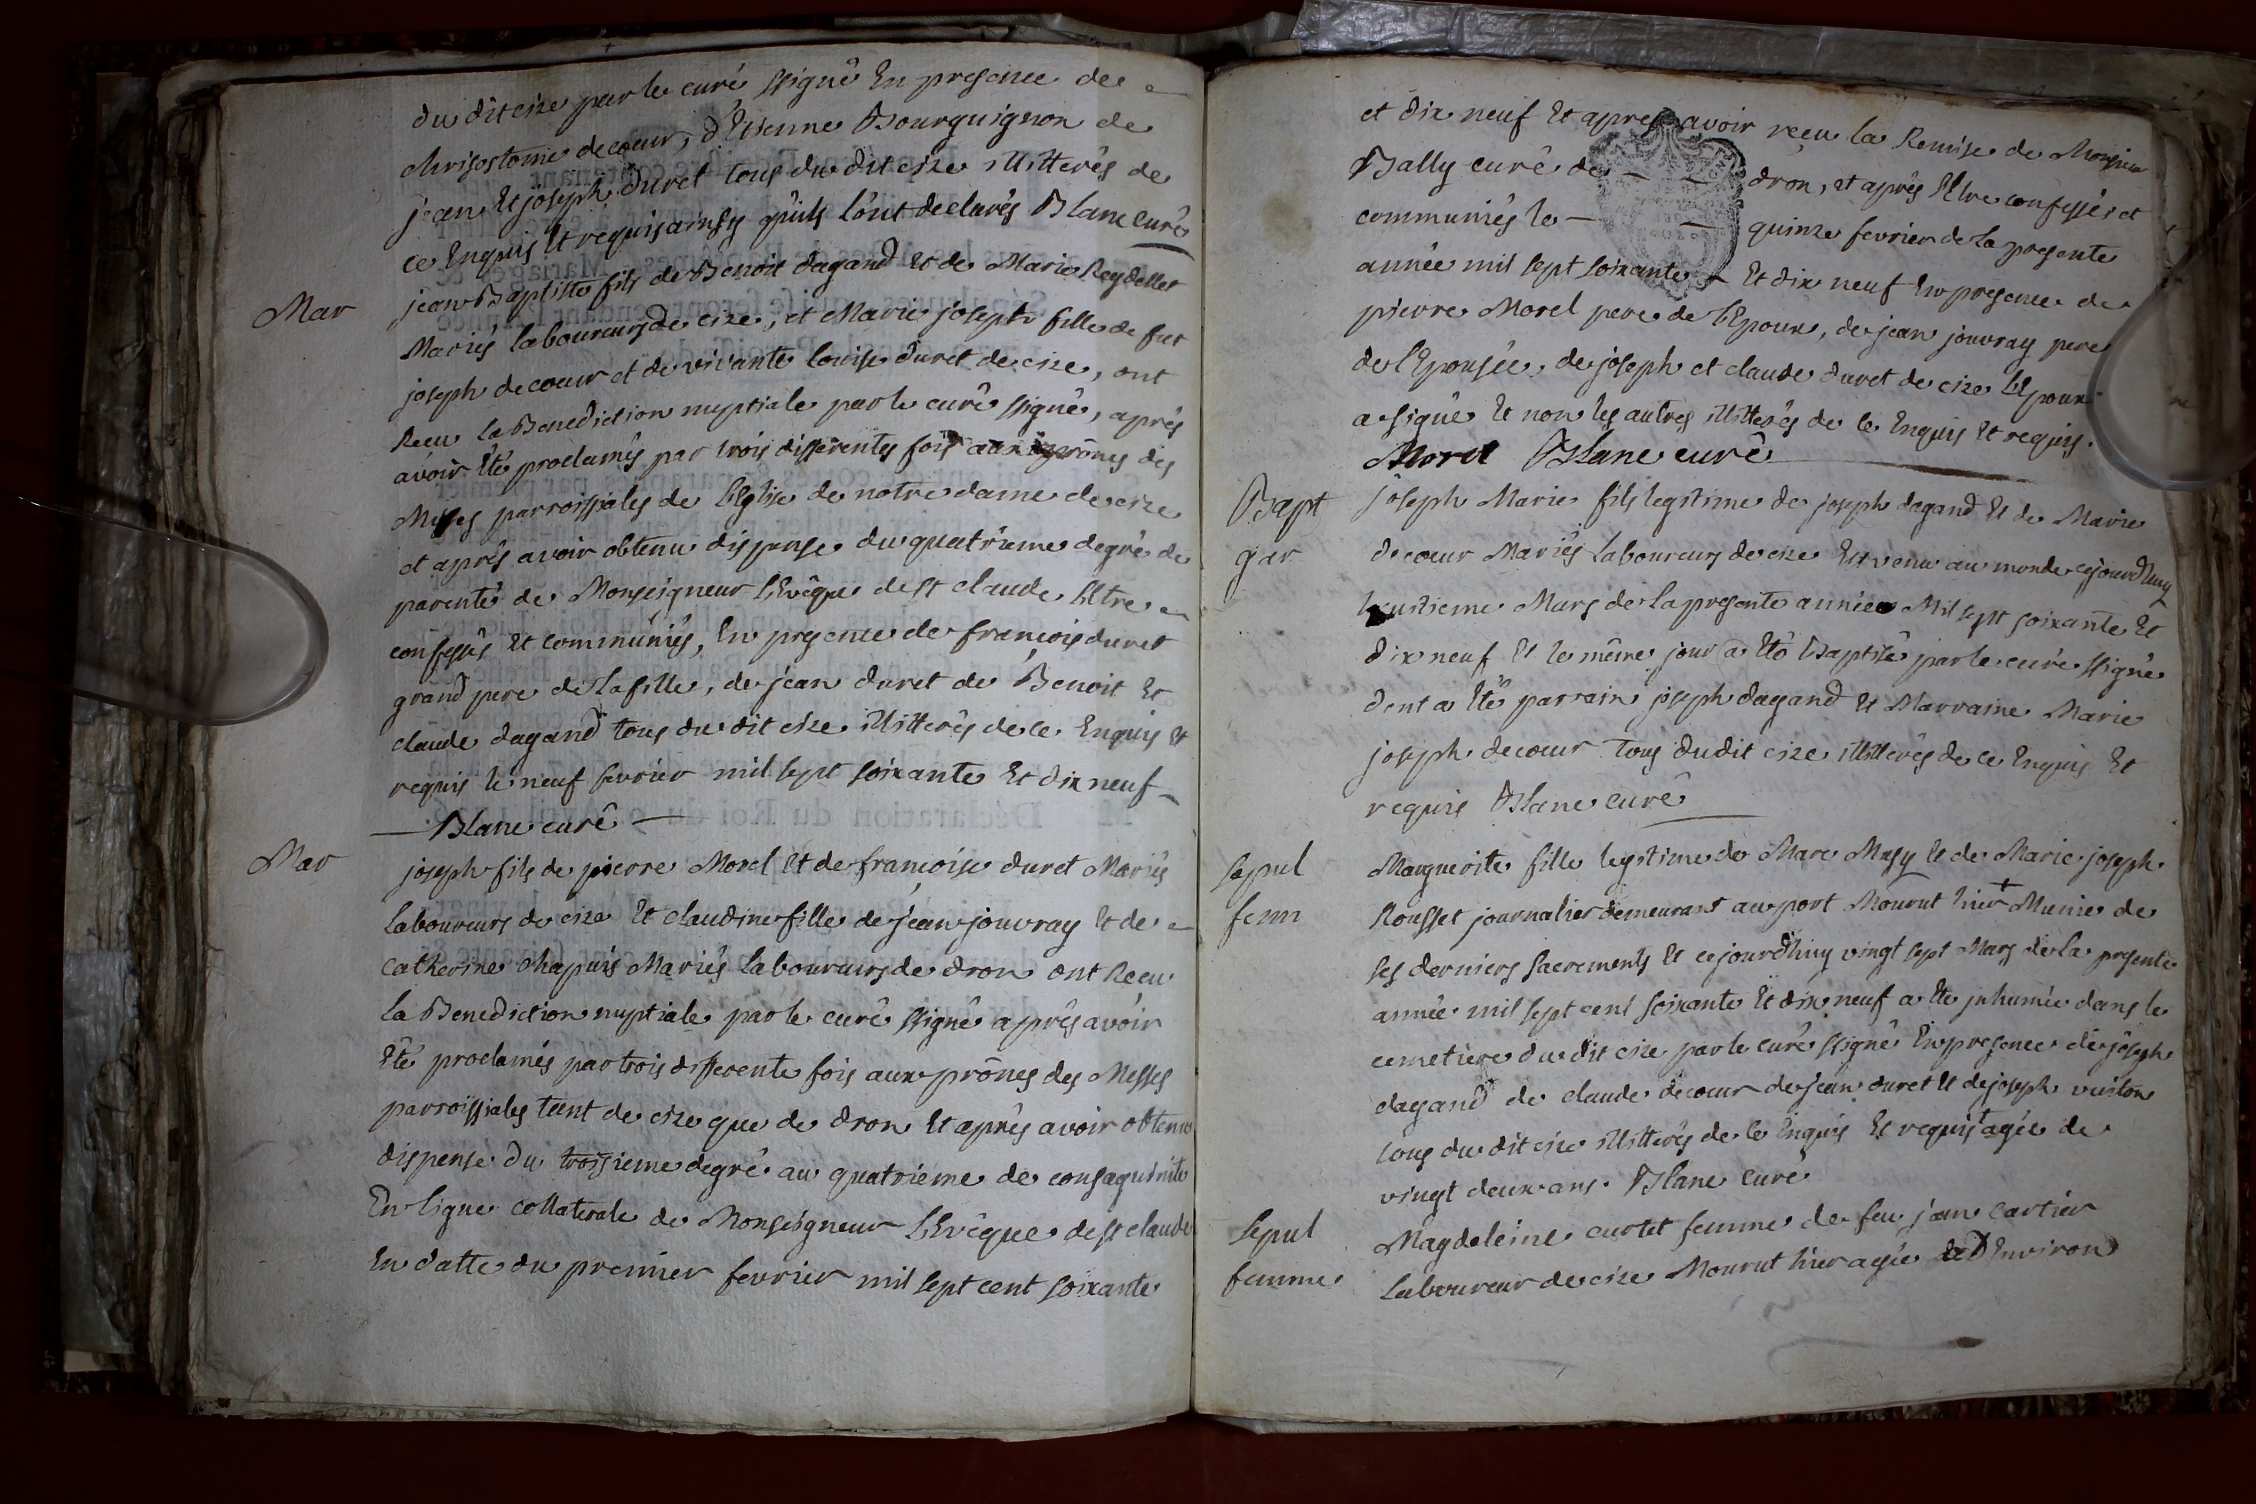 du dit cize par le curé ssigné En presence de
chrisostome decoeur, d'Etienne Bourguignon de
jean Et joseph duret tous du dit cize illitterés de
ce Enquis Et requis ainsy qu'ils l'ont declarés Blanc curé
Mar
jean Baptiste fils de Benoit dagand Et de Marie Reydellet
Mariés laboureurs de cize, et Marie joseph fille de fut
joseph decoeur et de vivante louise duret de cize, ont
Recu la Benediction nuptiale par le curé ssigné, aprés
avoir Eté proclamés par trois differentes fois aux prônes des
Messes parroissiales de l'Eglise de notre dame de cize
et aprés avoir obtenu dispense du quatrieme degré de
parenté de Monseigneur l'Evêque de st claude s'Etre
confessés Et communiés, En presence de francois duret
grand pere de la fille, de jean duret de Benoit Et
claude dagand tous du dit cize illitterés de ce Enquis Et
requis le neuf fevrier mil sept soixante Et dix neuf
Blanc curé
Mar
joseph fils de pierre Morel Et de francoise duret Mariés
laboureurs de cize Et claudine fille de jean jouvray Et de
catherine chapuis Mariés laboureurs de dron ont Recu
la Benediction nuptiale par le curé ssigné aprés avoir
Eté proclamés par trois differente fois aux prônes des Messes
parroissiales tant de cize que de dron Et aprés avoir obtenu
dispense du troisieme degré au quatrieme de consaguinité
En ligne collaterale de Monseigneur l'Evêque de st claude
En datte du premier fevrier mil sept cent soixante
et dix neuf Et aprés avoir recu la Remise de Monsieur
Bally curé de dron, et aprés s'Etre confessés et
communiés le quinze fevrier de la presente
année mil sept soixante Et dix neuf En presence de
pierre Morel pere de l'Epoux, de jean jouvray pere
de l'Epousée, de joseph et claude duret de cize l'Epoux
a signé Et non les autres illitterés de ce Enquis Et requis.
Morel Blanc curé
Bapt
gar
joseph Marie fils legitime de joseph dagand Et de Marie
decoeur Mariés laboureurs de cize Est venu au monde cejourdhuy
huitieme Mars de la presente année Mil sept soixante Et
dix neuf Et le même jour a Eté Baptisé par le curé ssigné
dont a Eté parrain joseph dagand Et Marraine Marie
joseph decoeur tous dudit cize illitterés de ce Enquis Et
requis Blanc curé
sepul
fem
Marguerite fille legitime de Marc Musy Et de Marie joseph
Rousset journalier demeurant au port Mourut hier + Munie de
ses derniers sacrements Et cejourdhuy vingt sept Mars de la presente
année mil sept cent soixante Et dix neuf a Eté inhumée dans le
cemetiere du dit cize par le curé ssigné En presence de joseph
dagand de claude decoeur de jean duret Et de joseph
tous du dit cize illitterés de ce Enquis Et requis + agée de
vingt deux ans. Blanc curé
Sepul
femme
Magdeleine curtet femme de feu jean cartier
laboureur de cize Mourut hier agée d'Environ